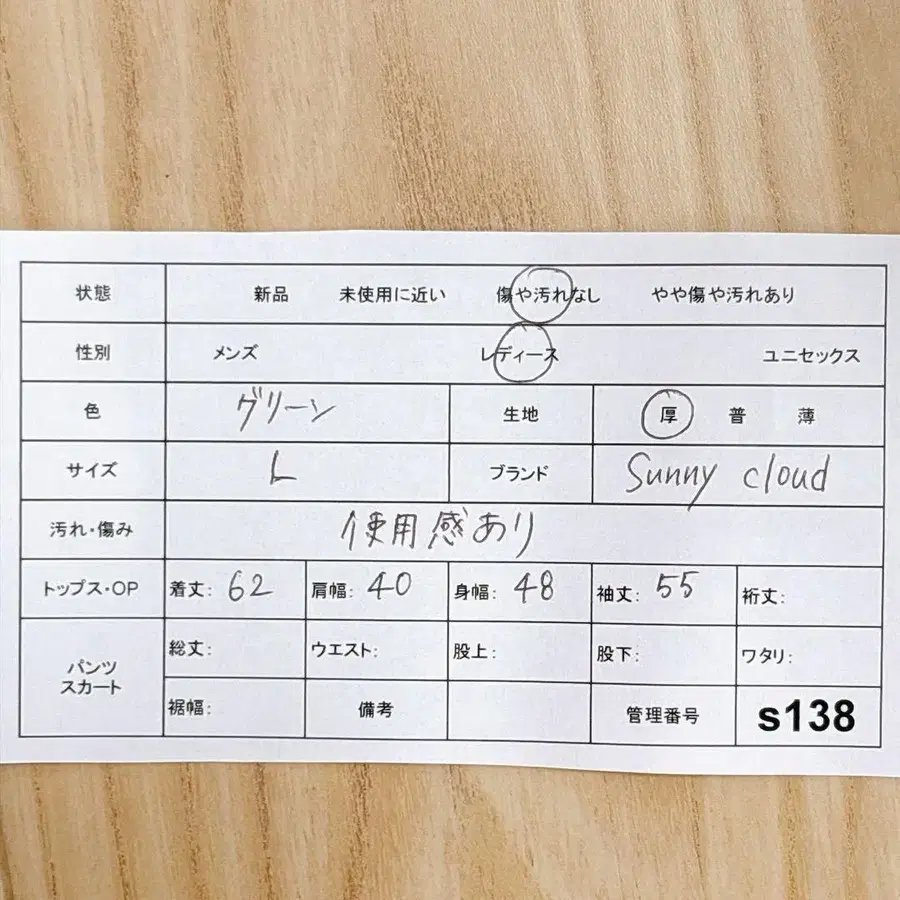 状態 新品 未使用に近い 傷や汚れなし やや傷や汚れあり
性別 メンズ レディース ユニセックス
色 グリーン 生地 厚 普 薄
サイズ L ブランド Sunny cloud
汚れ・傷み 使用感あり
トップス・OP 着丈: 62 肩幅: 40 身幅: 48 袖丈: 55 裄丈:
パンツ スカート 総丈: ウエスト: 股上: 股下: ワタリ:
裾幅: 備考 管理番号 s138